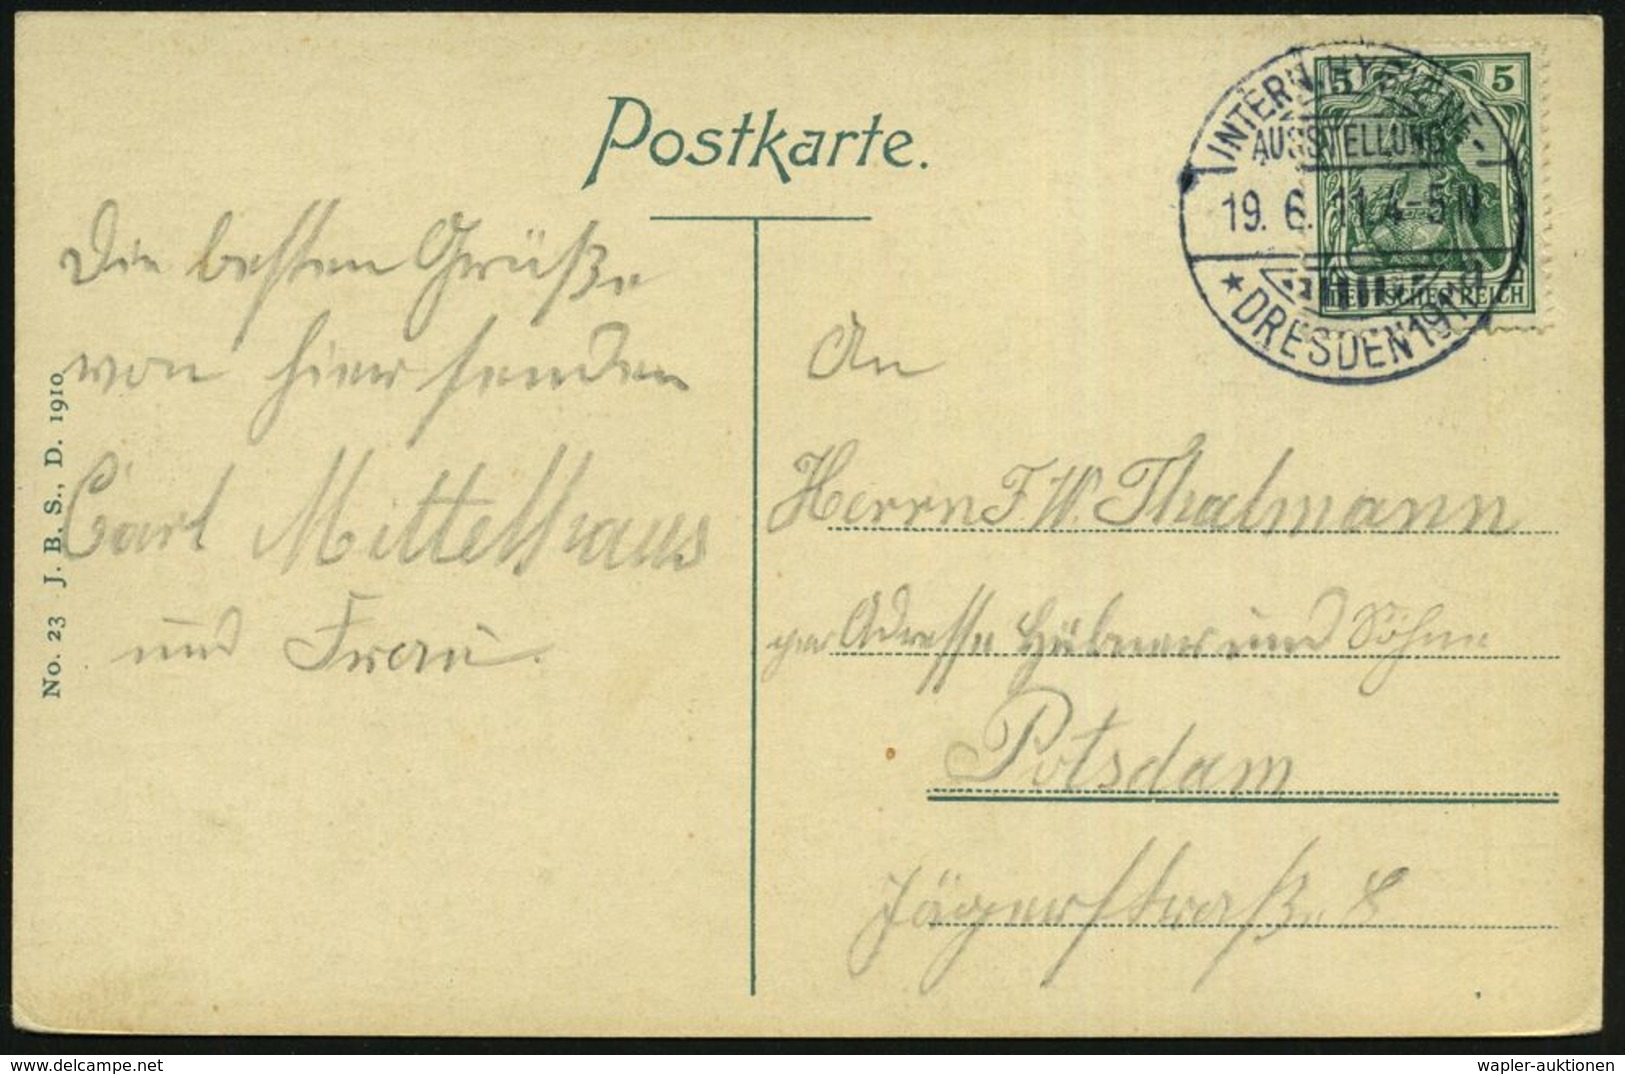 Postkarte.
INTERN. HYGIENE-
AUSSTELLUNG
19. 6. 11. 4-5 N
* DRESDEN 1911
5 5
DEUTSCHES REICH
Die besten Grüße
von hier senden
Carl Mittelhaus
und Frau.
No. 23 J. B. S., D. 1910
An
Herrn F W. Thalmann
per Adresse Hübner und Söhne
Potsdam
Jägerstraße 8
delcampe.net
wapler-auktionen